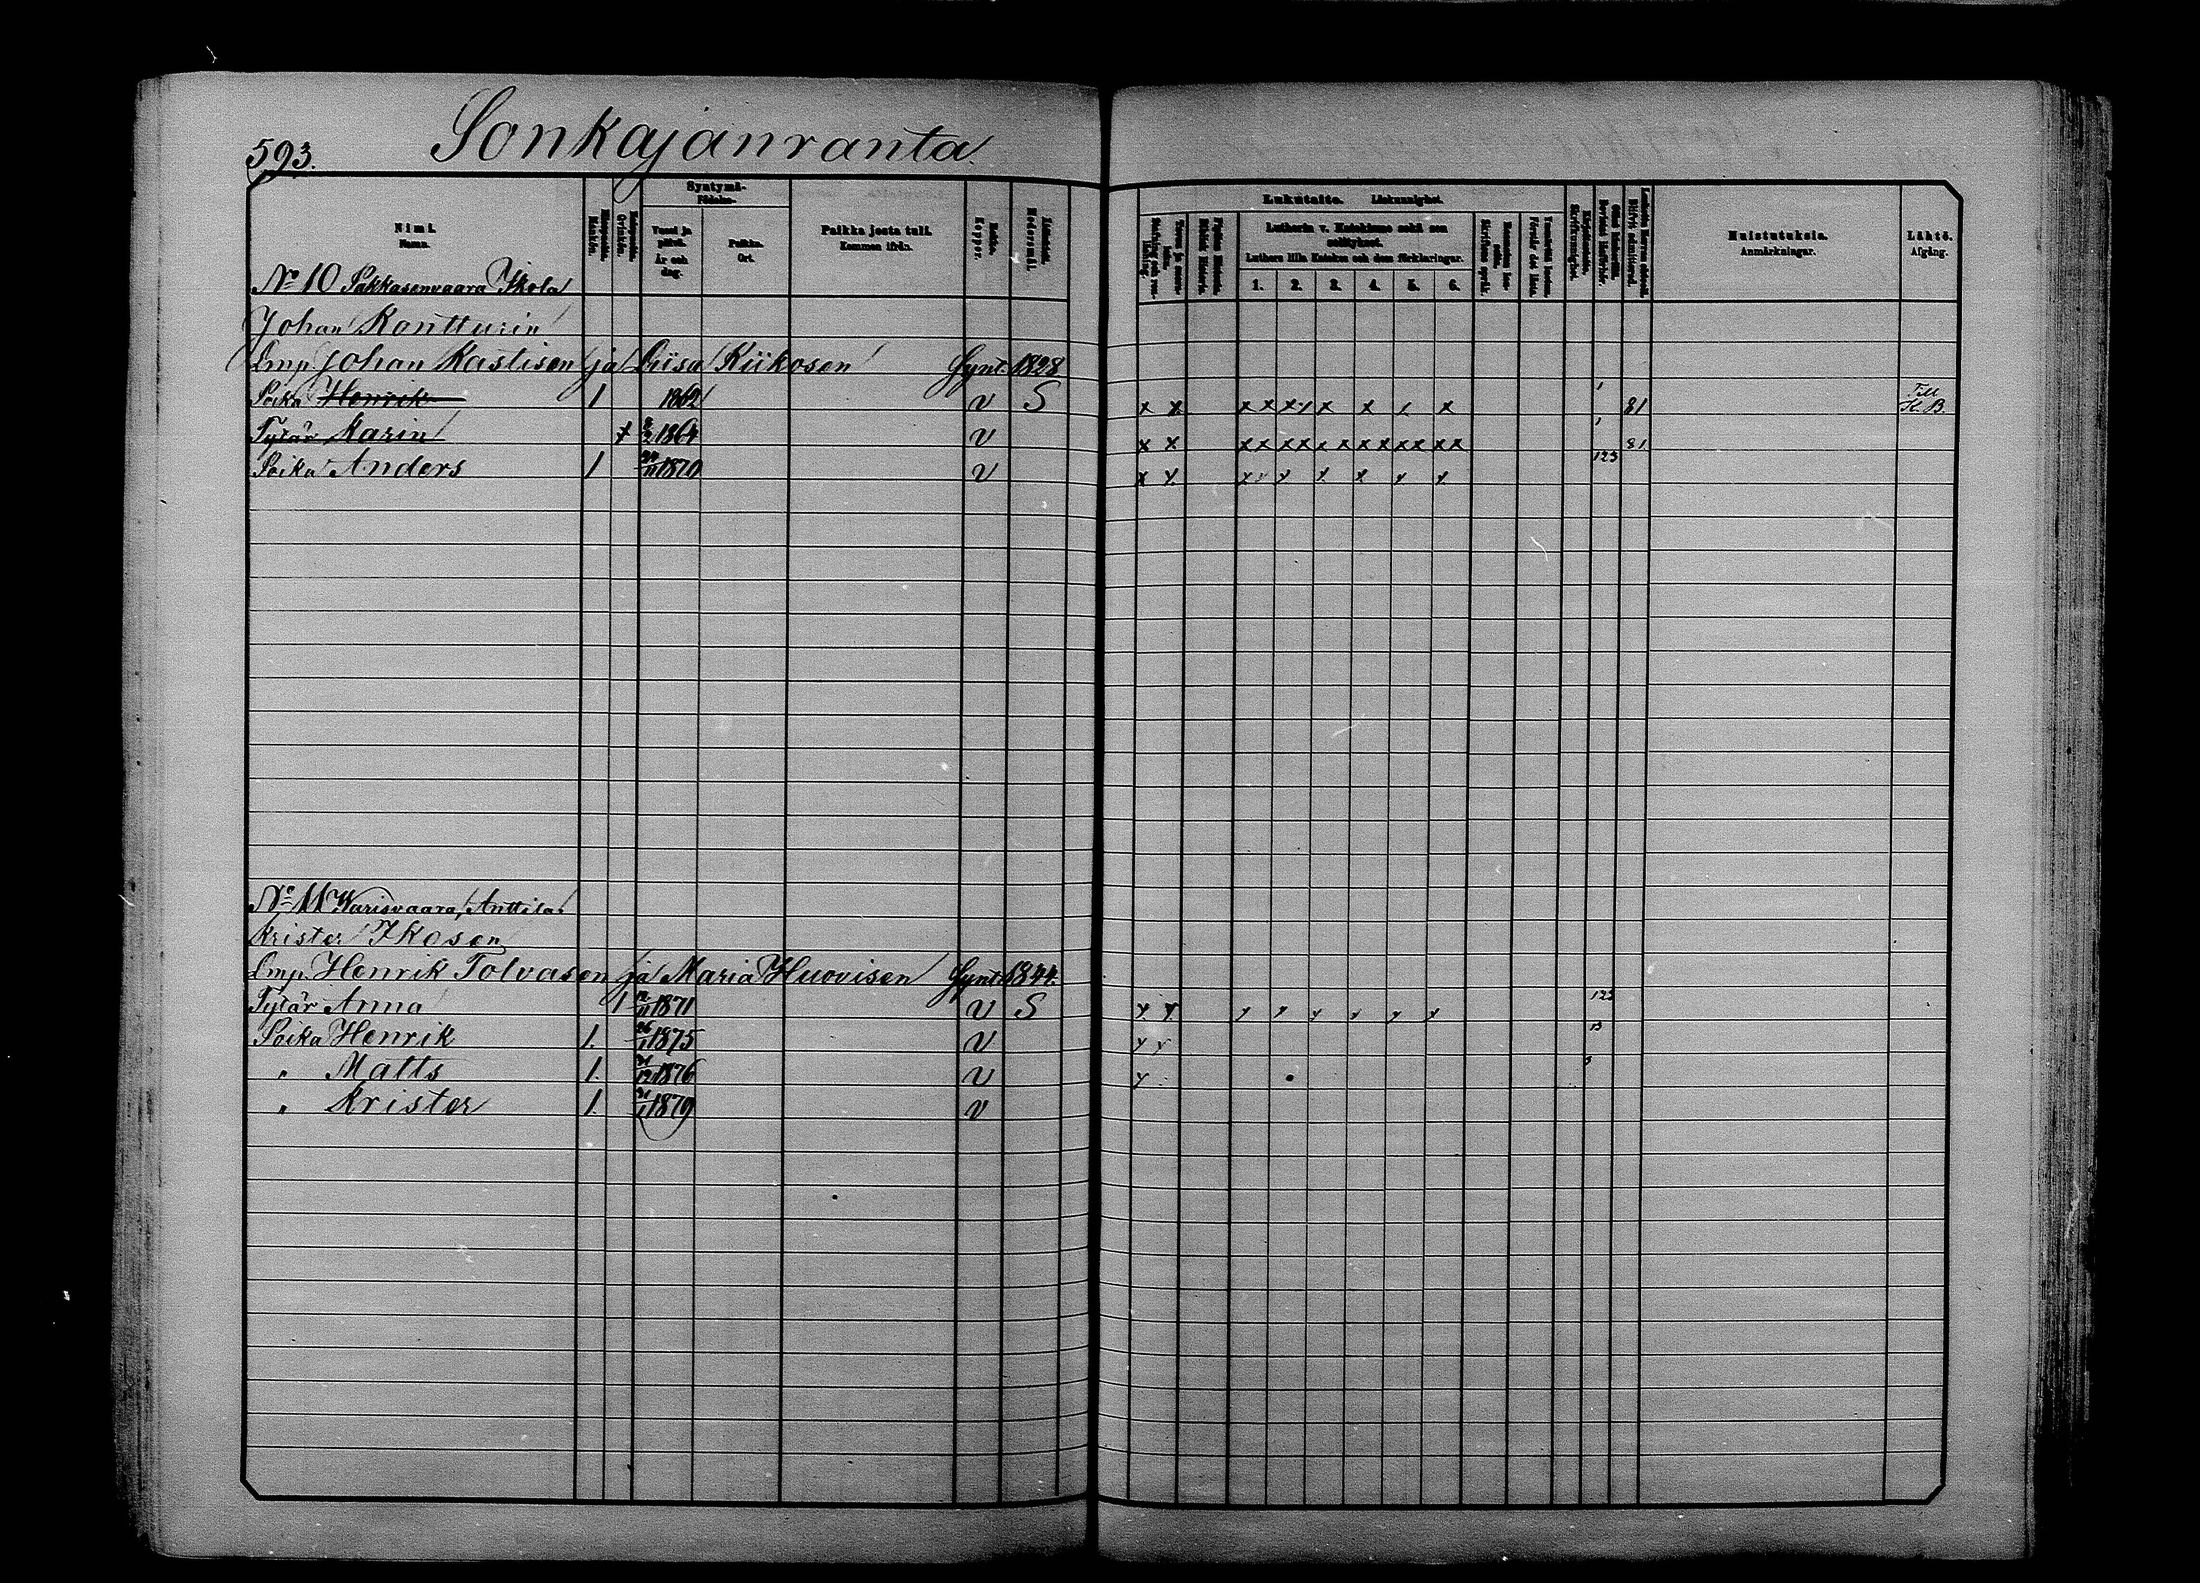 593. Sonkajanranta.
Nimi. Namn.
Miespuolia. Mankön.
Syntymä- Födelse-
Vuosi ja päivä. År och dag.
Paikka. Ort.
Paikka josta tuli. Kommen ifrån.
Rokko. Koppor.
Äidinkieli. Modersmål.
Lukutaito. Läskunnighet.
Lutherin v. Katekismo sekä sen selitykset.
Luthers lilla Katekes och dess förklaringar.
1. 2. 3. 4. 5. 6.
Muistutuksia. Anmärkningar.
Lähtö. Afgång.
No 10 Sakkasenvaara Ikola
Johan Kontturin
Lmp. Johan Kastisen ja Liisa Kiikosen Synt. 1828
Poika Henrik 1 1862 v S x x x x x x x x x x 1 81 Till K. B.
Tytär Karin x 1864 v x x x x x x x x x x x x x x 1 81
Poika Anders 1 1870 v x x x x x x x x 123
No 11 Warisvaara, Anttila
Krister Ikosen
Lmp. Henrik Tolvasen ja Maria Huovisen Synt. 1844.
Tytär Anna 1 1871 v S x x x x x x x x 123
Poika Henrik 1. 26/1 1875 v x x
" Matts 1. 1876 v x
" Krister 1. 1879 v